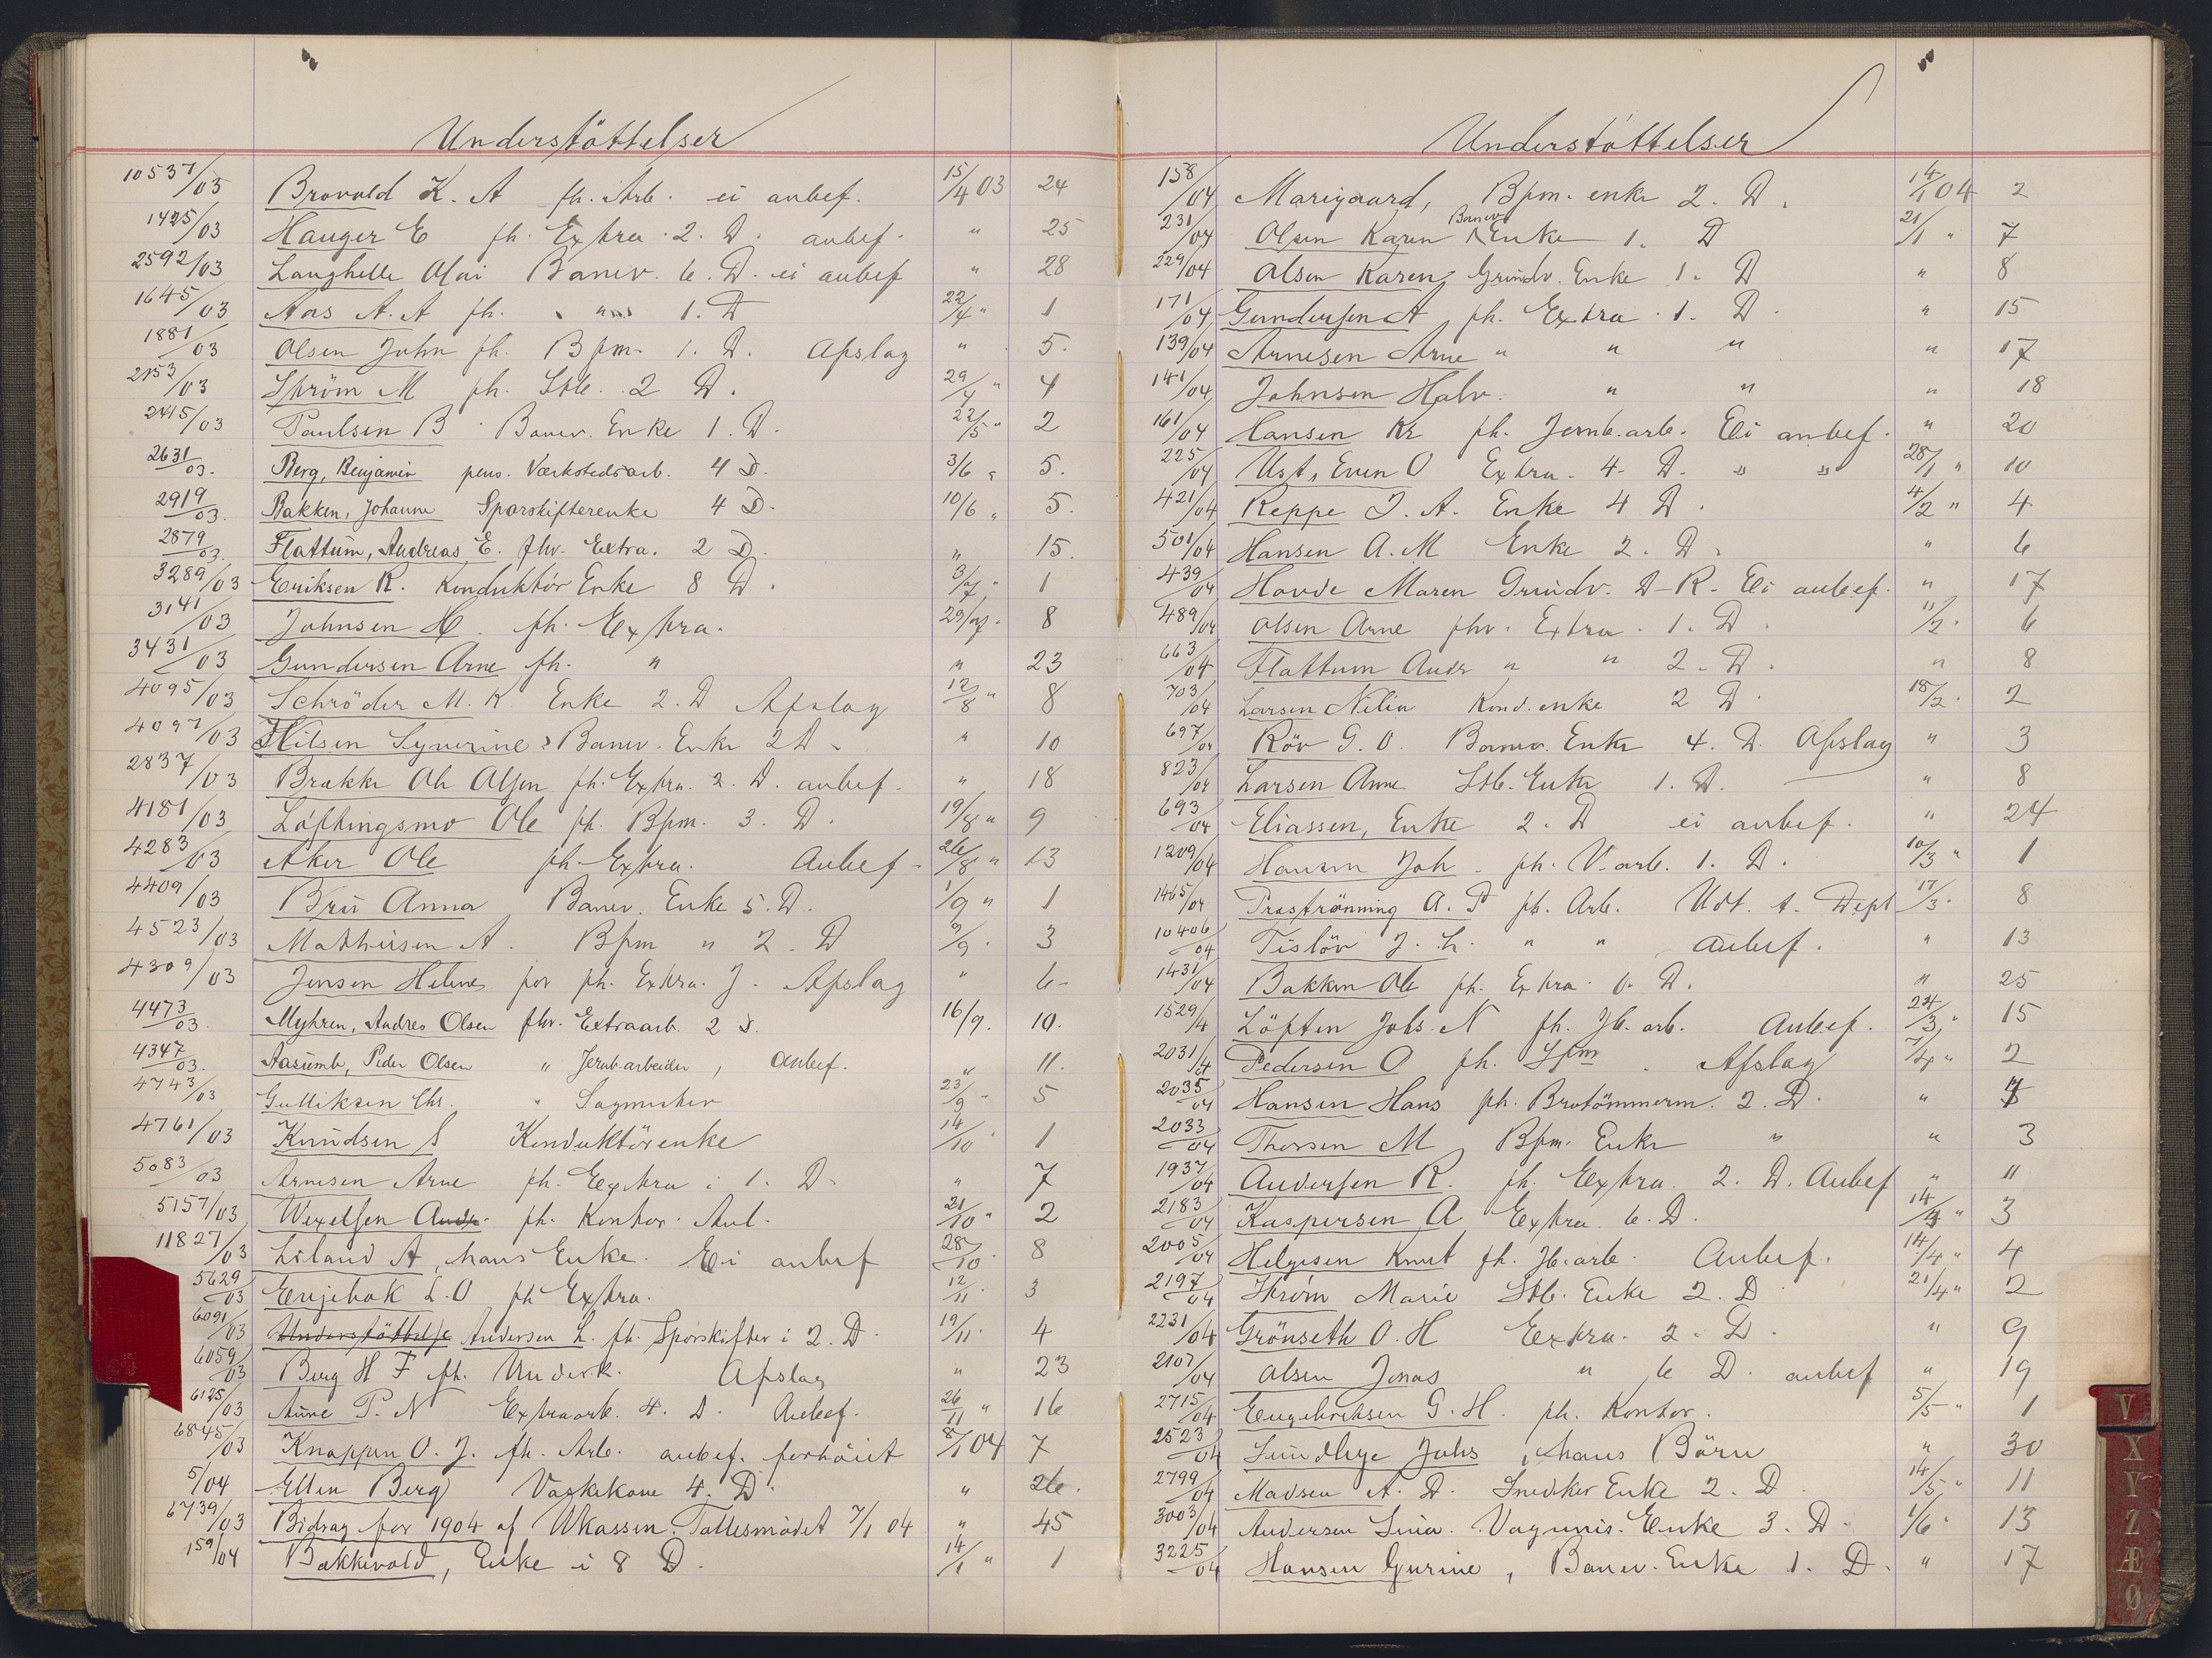 Understöttelser
10537/03 Brovold K. A fh. Arb. ei anbef. 15/4 03 24
1425/03 Hauger E fh. Extra. 2. D. anbef. " 25
2592/03 Langhelle Olai Banev. 6. D. ei anbef " 28
1645/03 Aas A. A fh. 1. D 22/4 " 1
1881/03 Olsen John fh. Bfm. 1. D. Afslag " 5.
2153/03 Ström M fh. Stb. 2 D. 29/4 " 4
2415/03 Paulsen B. Banev. Enke 1. D. 22/5 " 2
2631/03. Berg, Benjamin pens. Værkstedsarb. 4 D. 3/6 " 5.
2919/03. Bakken, Johanne Sporskifterenke 4 D. 10/6 " 5.
2879/03. Flattum, Andreas E. fhv. Extra. 2 D. " 15.
3289/03 Eriksen R. Konduktör Enke 8 D. 3/7 " 1
3141/03 Johnsen H. fh. Extra. 29/7 " 8
3431/03 Gundersen Arne fh. " " 23
4095/03 Schröder M. K. Enke 2. D Afslag 12/8 " 8
4097/03 Hilsen Synerine Banev. Enke 2 D. " 10
2837/03 Brække Ole Olsen fh. Extra. 2. D. anbef. " 18
4181/03 Löftingsmo Ole fh. Bfm. 3. D. 19/8 " 9
4283/03 Aker Ole fh. Extra. Anbef. 26/8 " 13
4409/03 Bru Anna Banev. Enke 5. D. 1/9 " 1
4523/03 Mathiesen A. Bfm " 2. D 9/9 " 3
4309/03 Jensen Helene for fh. Extra. J. Afslag " 6
4473/03. Myhren, Andres Olsen fhv. Extraarb. 2 D. 16/9. 10.
4347/03. Aasumb, Peder Olsen " Jernb.arbeider, Anbef. " 11.
4743/03 Gulliksen Chr. " Sagmester 23/9 " 5
4761/03 Knudsen S Konduktörenke 14/10 " 1
5083/03 Arnesen Arne fh. Extra i 1. D. " 7
5157/03 Wexelsen fh. Kontor. Aut. 21/10 " 2
11827/03 Liland A, hans Enke. Ei anbef 28/10 " 8
5629/03 Engebak L. O fh Extra. 12/11 " 3
6091/03 Understöttelse Andersen L. fh. Sporskifter i 2. D. 19/11 " 4
6059/03 Berg H F fh. Underk. Afslag " 23
6125/03 Aune P. N Extraarb. 4. D. Anbef. 26/11 " 16
6845/03 Knappen O. J. fh. Arb. anbef. forhöiet 8/1 04 7
5/04 Ellen Berg Vaskekone 4. D. " 26.
6739/03 Bidrag for 1904 af Ukassen. Fællesmödet 7/1 04 " 45
159/04 Bakkevold, Enke i 8 D. 14/1 " 1
Understöttelser
158/04 Marigaard, Bfm. enke 2. D. 14/1 04 2
231/04 Olsen Karen Banev. Enke 1. D 21/1 " 7
229/04 Olsen Karen, Grindv. Enke 1. D " 8
171/04 Gundersen A fh. Extra. 1. D. " 15
139/04 Arnesen Arne " " " " 17
141/04 Johnsen Halv. " " " 18
161/04 Hansen Kr fh. Jernb.arb. Ei anbef. " 20
225/04 Ust, Even O Extra. 4. D. " " 28/1 " 10
421/04 Reppe J. A. Enke 4 D. 4/2 " 4
501/04 Hansen A. M Enke 2. D. " 6
439/04 Hovde Maren Grindv. D-R. Ei anbef. " 17
489/04 Olsen Arne fhv. Extra. 1. D. 11/2 " 6
663/04 Flattum Andr " " 2. D. " 8
703/04 Larsen Nilia Kond. enke 2 D. 18/2 " 2
697/04 Röv G. O. Banev. Enke 4. D. Afslag " 3
823/04 Larsen Anne Stb. Enke 1. D. " 8
693/04 Eliassen, Enke 2. D ei anbef. " 24
1209/04 Hansen Joh. fh. V.arb. 1. D. 10/3 " 1
1465/04 Præströnning A. P fh. Arb. Udt. t. Dept 17/3 " 8
10406/04 Tislöv J. L. " " Anbef. " 13
1431/04 Bakken Ole fh. Extra. D. " 25
1529/4 Löften Johs. N fh. Jb. arb. Anbef. 24/3 " 15
2031/4 Pedersen O fh. Afslag 7/4 " 2
2035/04 Hansen Hans fh. Brotömmerm. 2. D. " 7
2033/04 Thorsen M Bfm. Enke " " 3
1937/04 Andersen R. fh. Extra. 2. D. Anbef " 11
2183/04 Kaspersen A Extra. 6. D. 14/4 " 3
2005/04 Helgesen Knut fh. Jb. arb. Anbef. 14/4 " 4
2197/04 Ström Marie Stb. Enke 2. D 21/4 " 2
2231/04 Grönseth O. H Extra. 2. D. " 9
2107/04 Olsen Jonas " 6 D. anbef " 19
2715/04 Engebretsen G. H. fh. Kontor. 5/5 " 1
2523/04 Lundbye Johs, hans Börn " 30
2799/04 Madsen A. D. Snedker Enke 2. D. 14/5 " 11
3003/04 Andersen Lina. Vognvis. Enke 3. D. 1/6 " 13
3225/04 Hansen Gurine, Banev. Enke 1. D. " 17
V
X
Y
Z
Æ
Ø